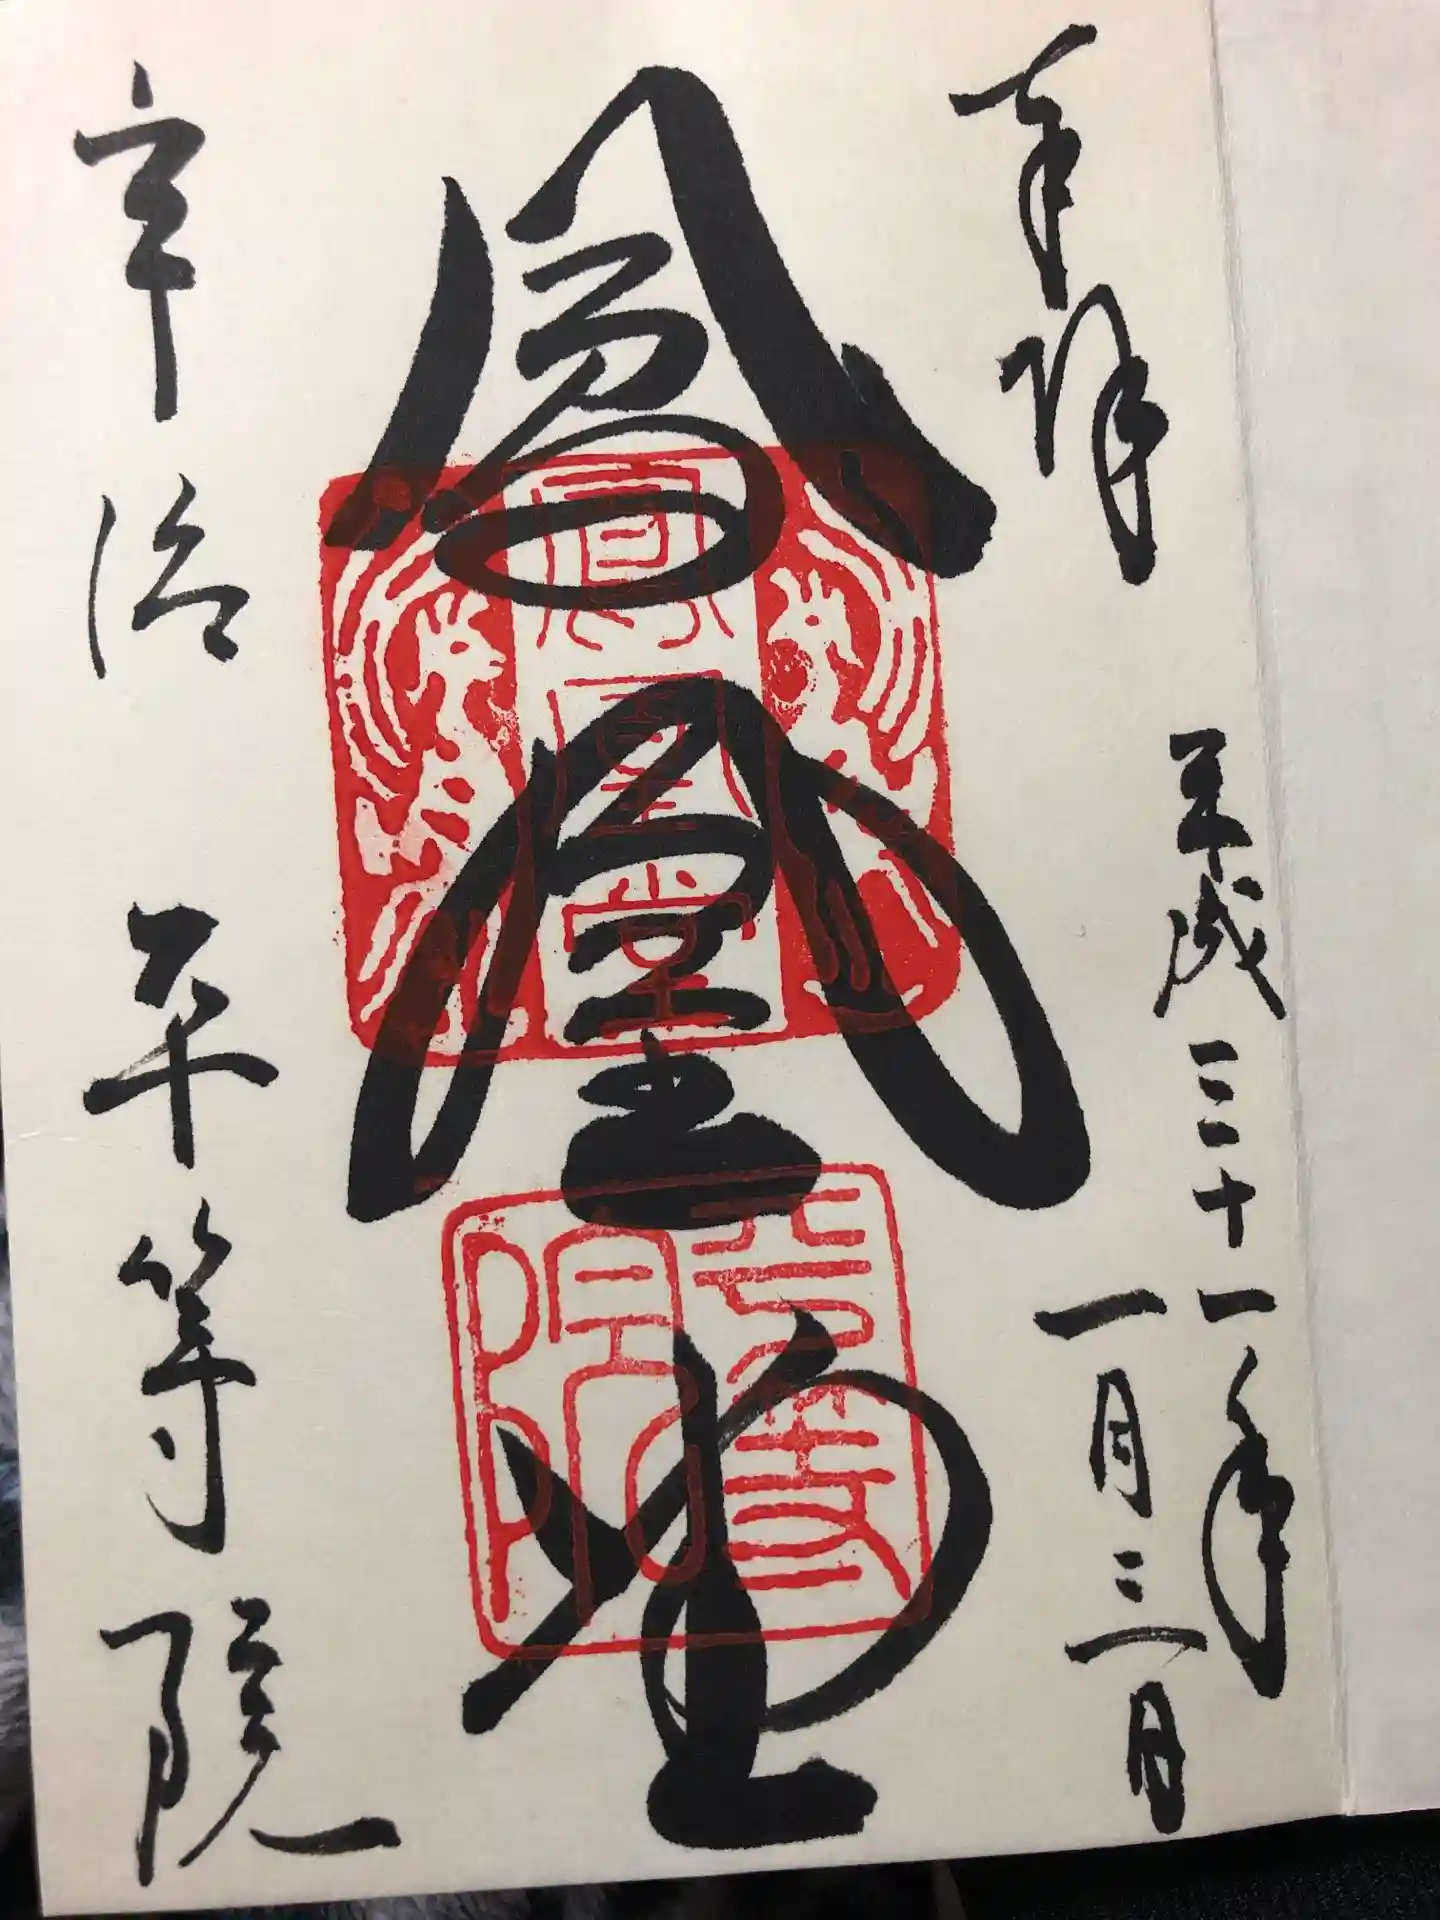 奉拝
平成三十一年
一月三日
鳳凰堂
宇治 平等院
鳳凰堂
平等院印